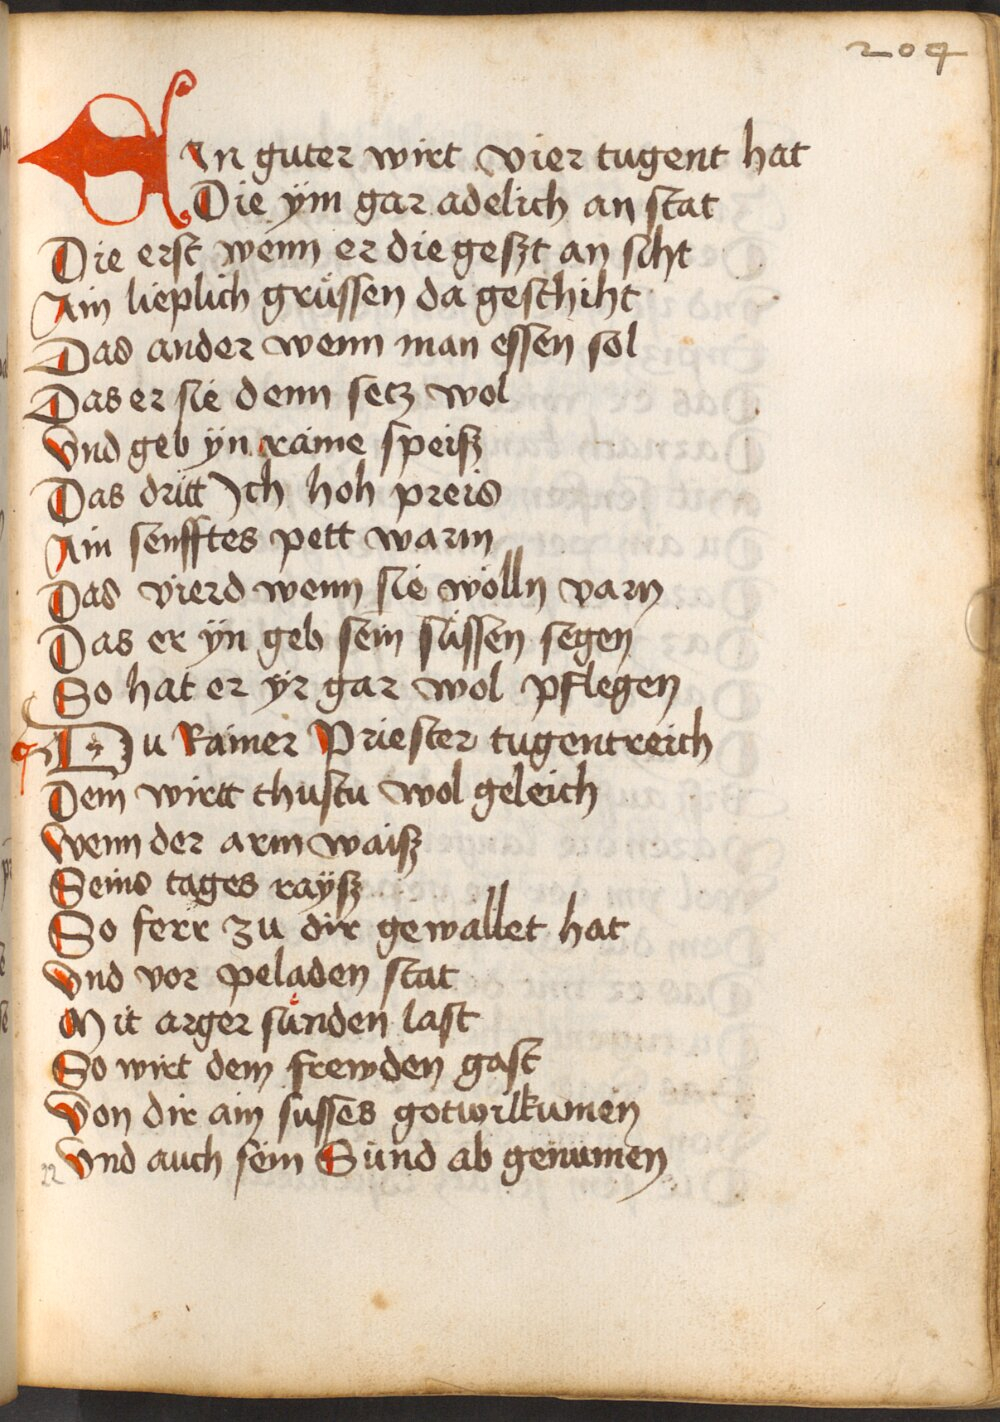 204
AIn guter wirt vier tugent hat
Die ÿm gar adelich an stat
Die erst wenn er die geszt an siht
Ain lieplich grüssen da geschiht
Das ander wenn man essen sol
Das er sie denn setz wol
Vnd geb ÿn raine speisz
Das dritt Ich hoh preis
Ain senfftes pett warm
Das vierd wenn sie wölln varn
Das er ÿn geb sein süssen segen
So hat er ÿr gar wol pflegen
DU Rainer Priester tugentreich
Dem wirtt thustu wol geleich
Wenn der arm waisz
Seins tages raÿsz
So ferr zu dir gewallet hat
Vnd vor peladen stat
Mit arger sünden last
So wirt dem frewden gast
Von dir ain susses gotwilkumen
Vnd auch sein Sünd ab genumen
22